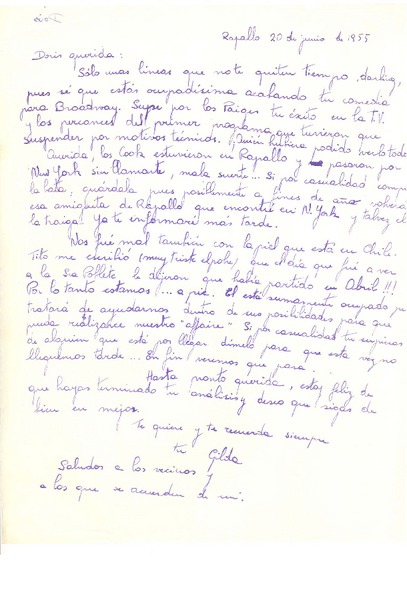 Rapallo 20 de junio de 1955
Doris querida:
Sólo unas líneas que no te quiten tiempo, darling,
pues sé que estás ocupadísima acabando tu comedia
para Broadway. Supe por los Paiges tu éxito en la T.V.
y los percances del primer programa que tuvieron que
suspender por motivos técnicos. ¡Quién hubiera podido verlo todo
Querida, los Cook estuvieron en Rapallo y pasaron por
New York sin llamarte, mala suerte... Si por casualidad compras
la bata, guárdala pues posiblemente a fines de año volverá
esa amiguita de Rapallo que encontré en N. York y talvez ella
la traiga. Ya te informaré más tarde.
Nos fué mal también con la piel que está en Chile.
Tito me escribió (muy triste el pobre) que el día que fué a ver
a la Sra Poblete le dijeron que había partido en Abril!!!
Por lo tanto estamos... a pie. El está sumamente ocupado, ya
tratará de ayudarnos dentro de sus posibilidades para que
pueda realizarse nuestro "affaire" Si por casualidad tu supieras
de alguien que esté por llegar dímelo para que esta vez no
lleguemos tarde... En fin veremos que pasa.
Hasta pronto querida, estoy feliz de
que hayas terminado tu análisis y deseo que sigas de
bien en mejor.
Te quiere y te recuerda siempre
tu Gilda
Saludos a los vecinos y
a los que se acuerden de mí.